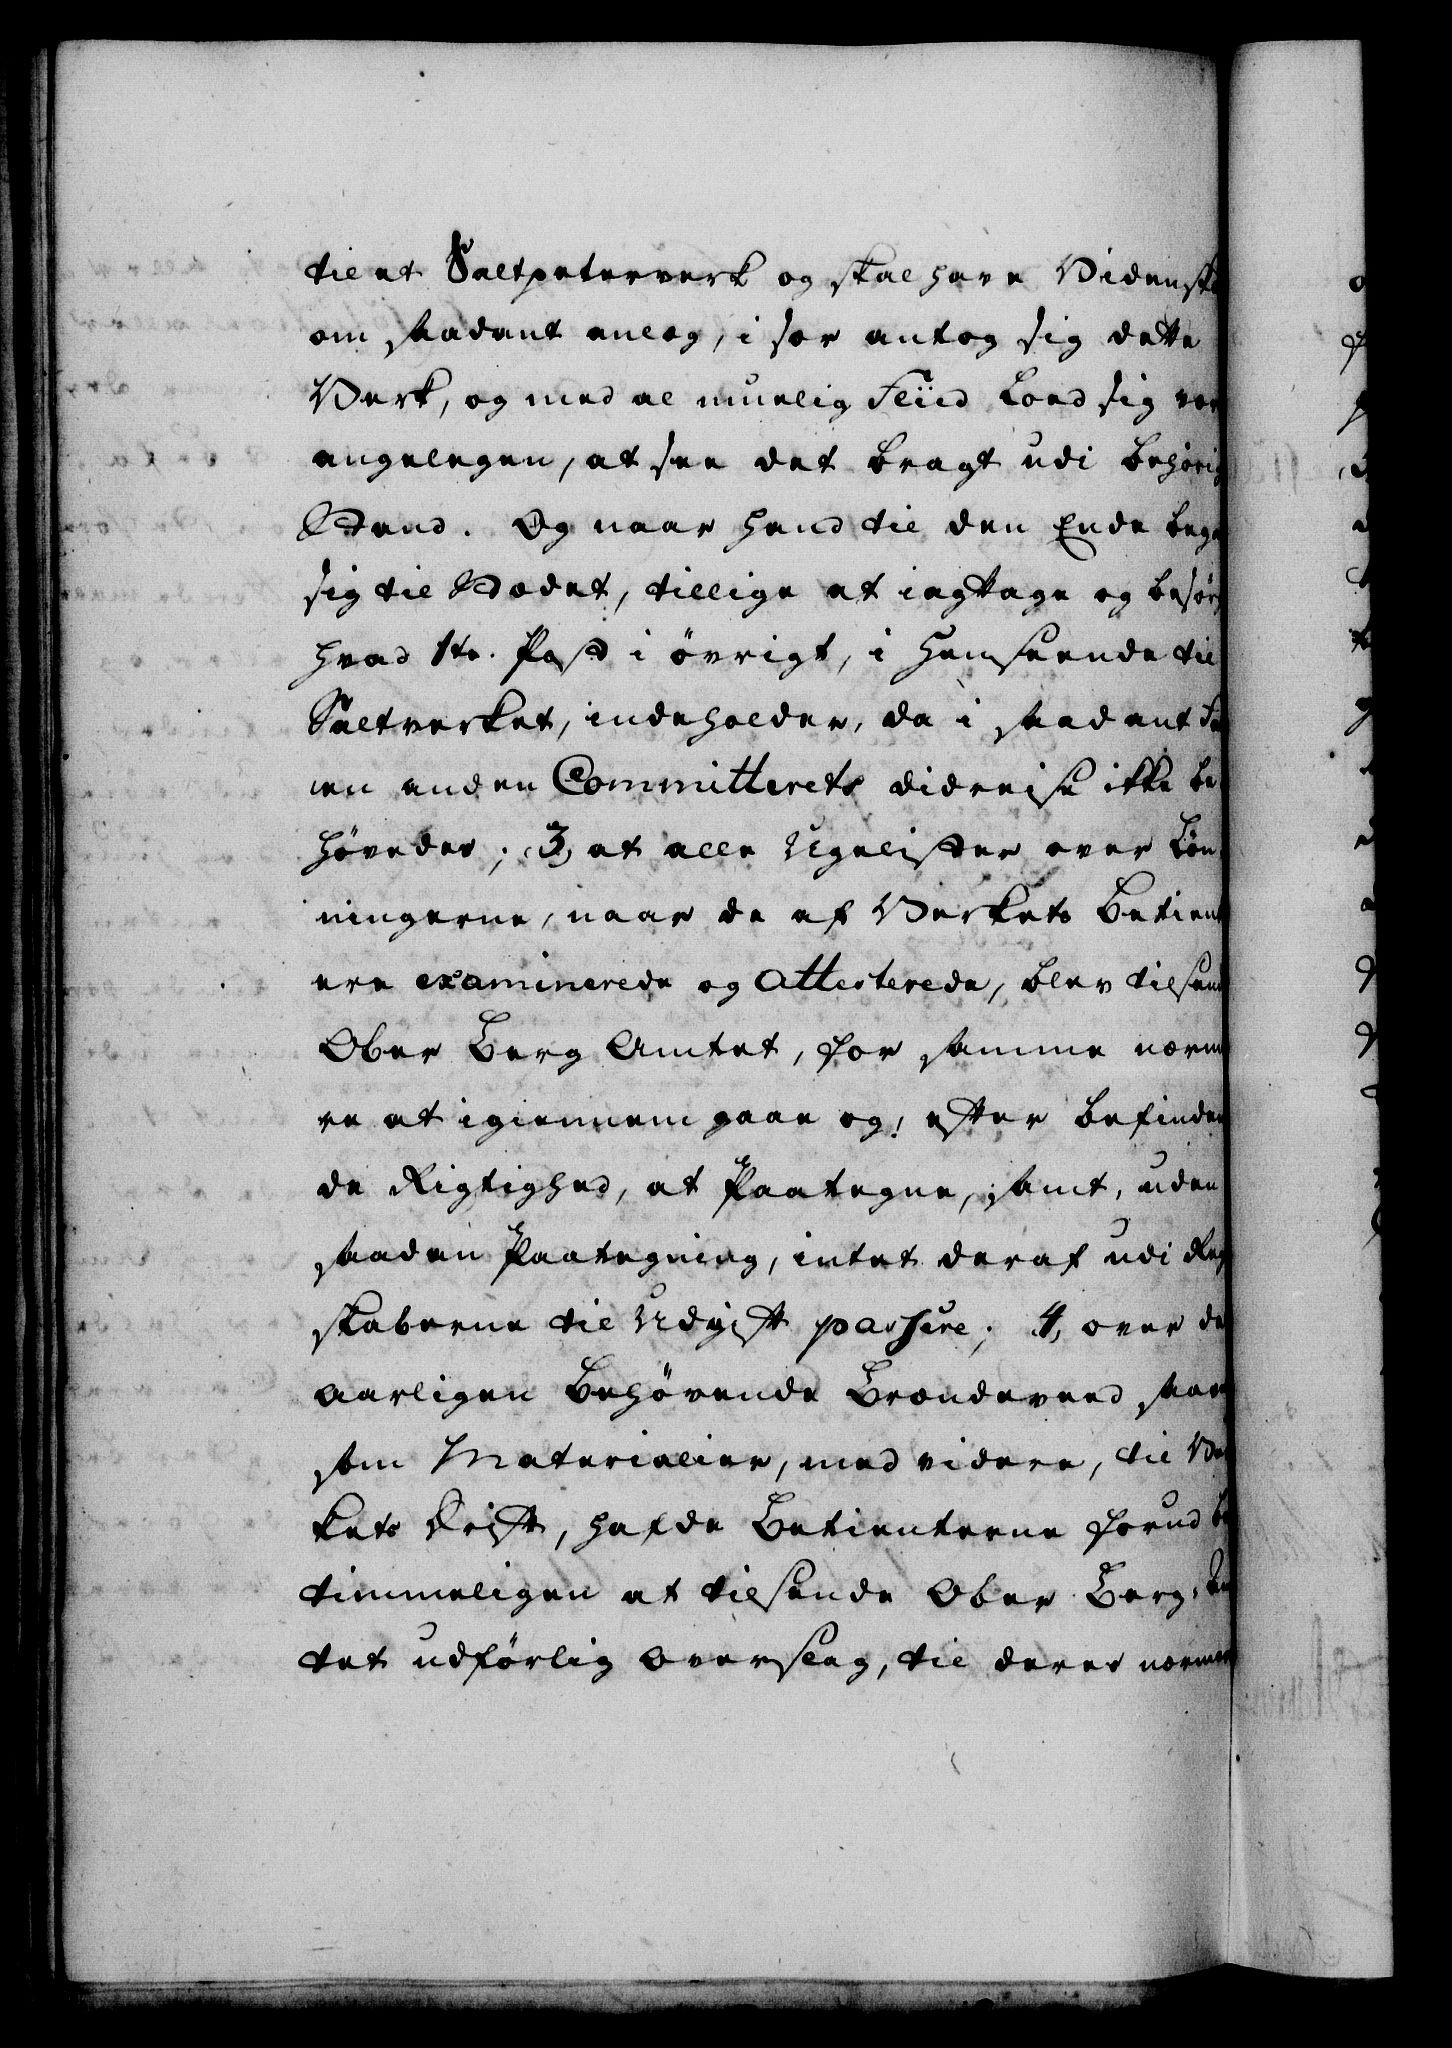 til et Saltpeterverk og skal have Vidensk
om saadant anlæg, i sær antog sig dette
Verk, og med al muelig Fliid Loed sig vær
angelegen, at see det bragt udi behørig
Stand. Og naar hand til den Ende bega
sig til Stædet, tillige at iagttage og besørg
hvad 1te. Post i øvrigt, i Henseende til
Saltverket, indeholder, da i saadant Fa
en anden Committerets didreise ikke be
høvedes; 3, at alle Ugelister over Løn,
ningerne, naar de af Verkets Betient
ere examinerede og attesterede, blev tilsend
Ober Berg Amtet, for samme nærm
re at igiennem gaae og, efter befinden
de Rigtighed, at Paategne, samt, uden
saaden Paategning, intet deraf udi Reg
skaberne til Udgift passere; 4, over de
aarligen behøvende Brændeveed saav
som Materialier, med videre, til Ver
kets Drift, hafde Betienterne forud be
timmeligen at tilsende Ober Berg, Am
tet udførlig Overslag, til deres nærmer